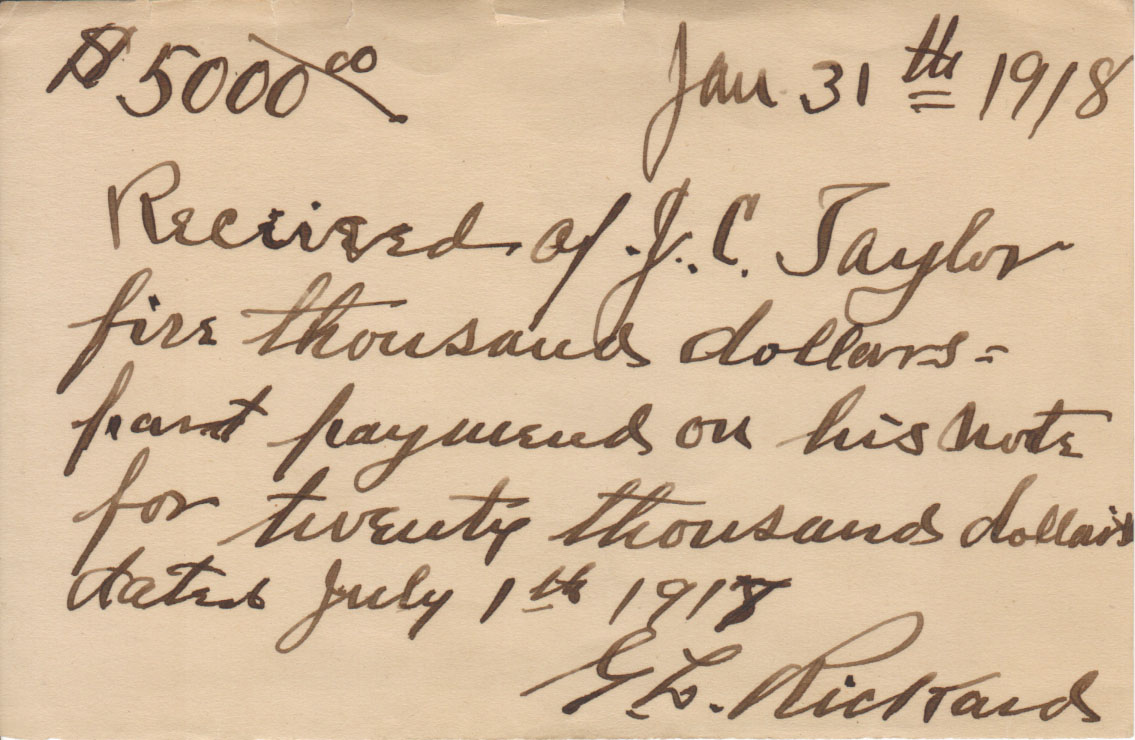 $5000 00 Jan 31th 1918
Received of J. C. Taylor
five thousand dollars-
part payment on his note
for twenty thousand dollars
dated July 1th 1917
G. L. Rickard